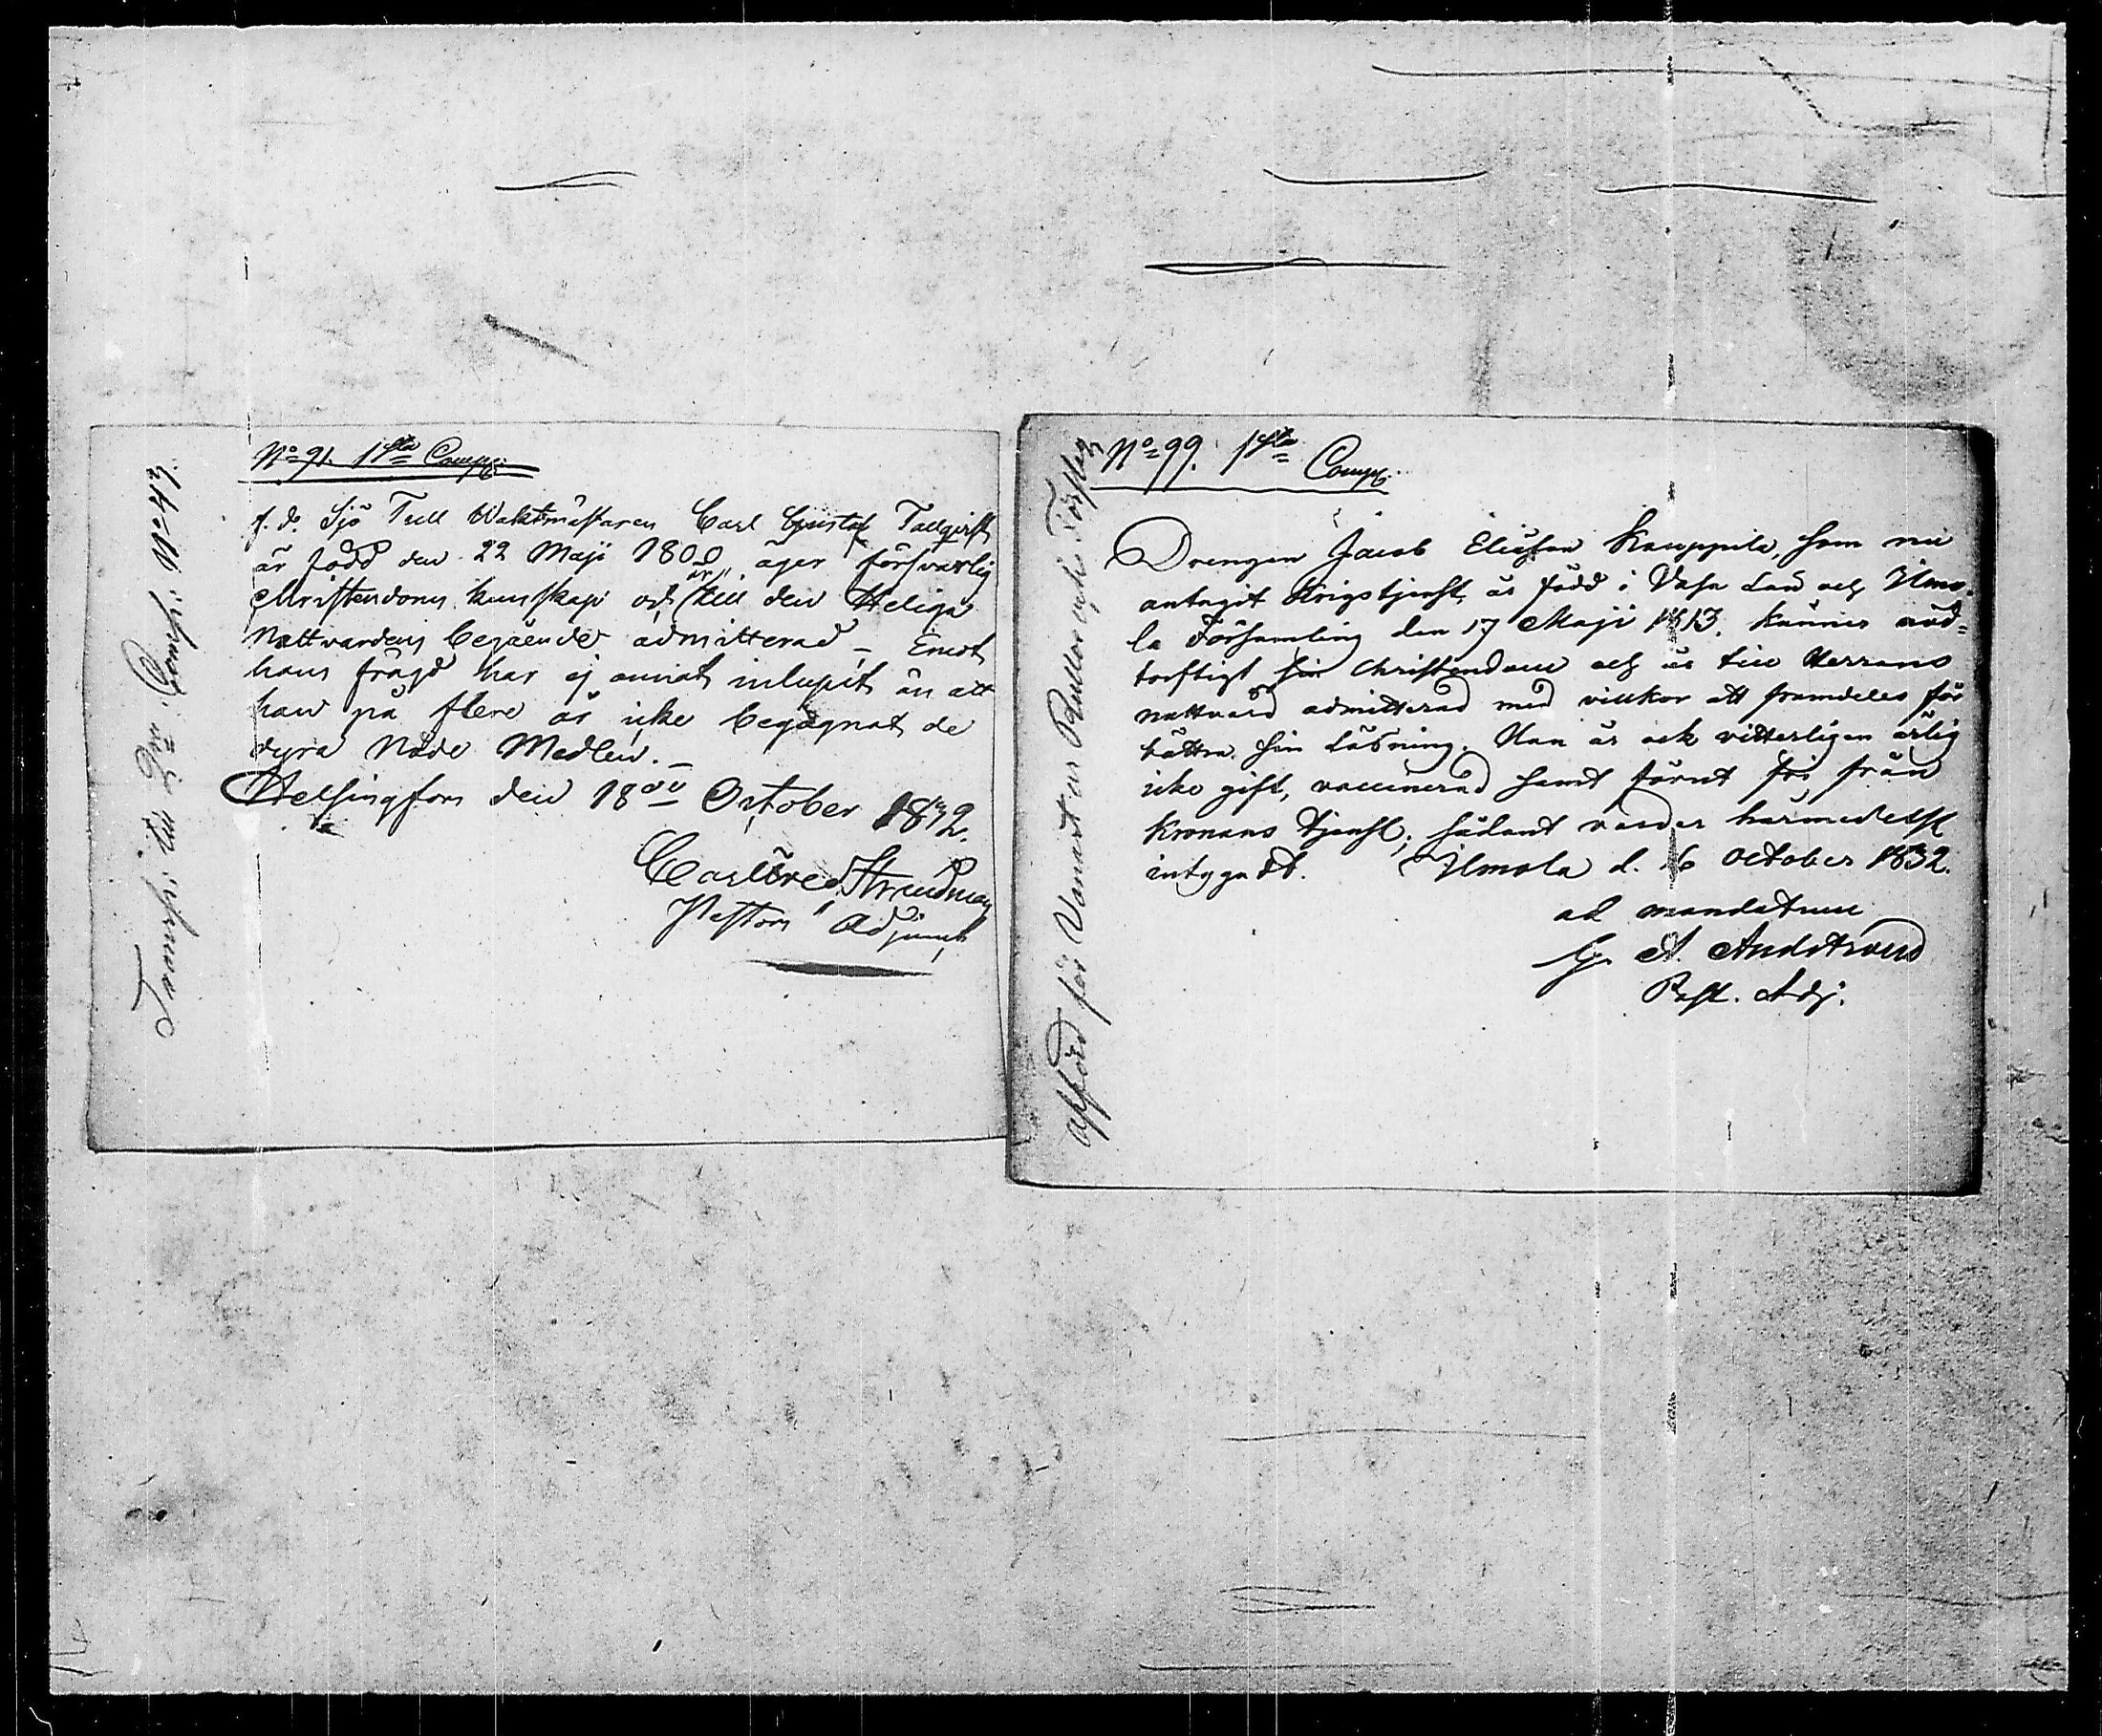 No 91. 1sta Comp:
f. d. Sjö Tull Waktmästaren Carl Gustaf Tallqvist
är född den 22 Maji 1800, äger försvarlig
Christendoms kunskap och är till den Heliga
Nattvardens begående admitterad – Emot
hans frägd har ej annat inlupit än att
han på flere år icke begagnat de
dyra Nåde Medlen. –
Helsingfors den 18de October 1832.
Carl Strandman
Pastors Adjunct
No 99. 1sta Comp:
Drengen Jacob Eliasson Kauppila, som nu
antagit Krigstjenst, är född i Vasa Län och Ilmo-
la Församling den 17 Maji 1813. känner nöd-
torftigt sin Christendom och är till Herrans
nattvard admitterad med villkor att framdeles för
bättra sin läsning. Han är ock vitterligen ärlig
icke gift, vaccinerad samt förut fri från
Kronans tjenst; sådant varder härmedelst
intygadt. Ilmola d. 16 October 1832.
ad mandatum
G. A.
Past. Adj.
afförd för Vanart ur Rullor